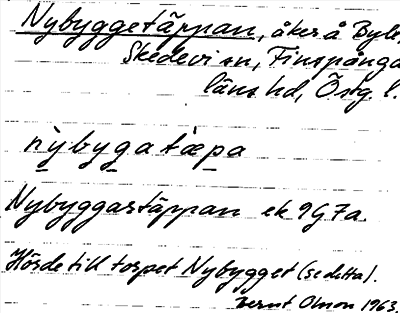 Nybyggetäppan, åker å Byle,
Skedevi sn, Finspånga
läns hd, Östg l.
nybygatæpa
Nybyggastäppan ek 9G7a.
Hörde till torpet Nybygget (se detta).
1963.